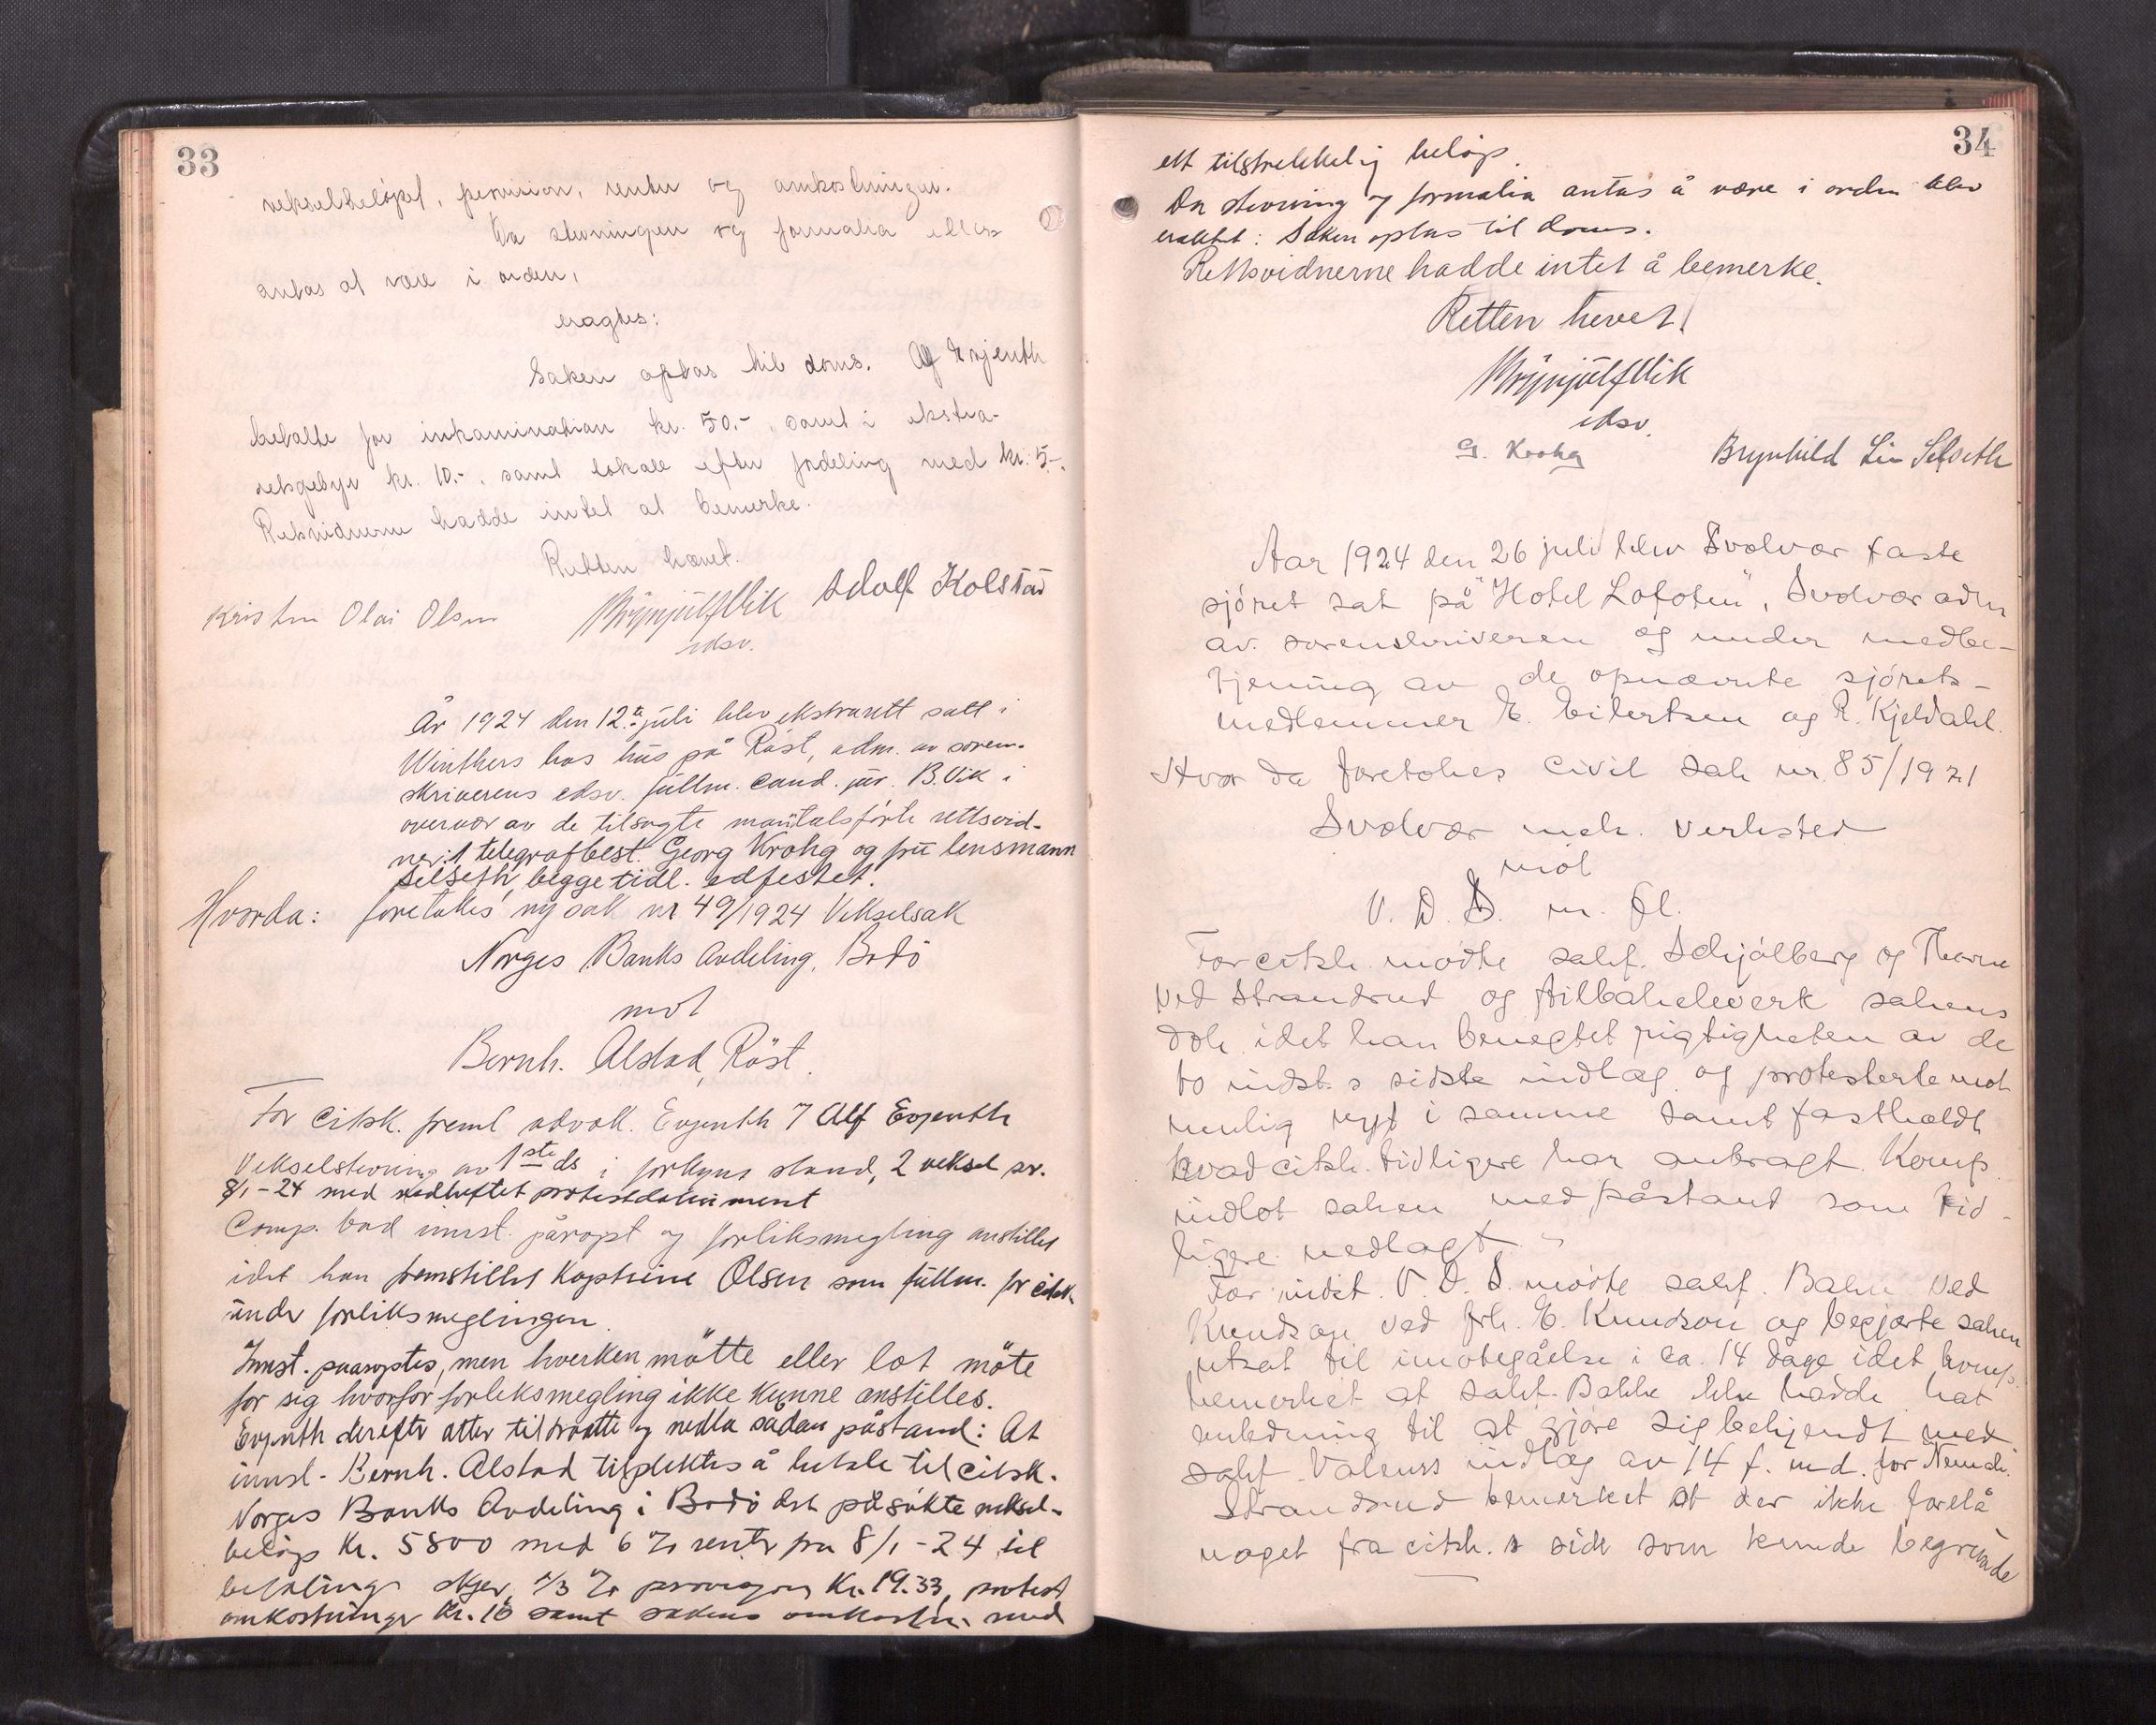 33
vekselbeløpet, provision, renter og omkostninger.
Da stevningen og formalia ellers
antas at være i orden,
eragtes:
Saken optas til doms. Alf Evjenth
betalte for inkamination kr. 50.-, samt i ekstra-
retsgebyr kr. 10.-, samt lokale efter fordeling med kr. 5-.
Retsvidnerne hadde intet at bemerke.
Retten hævet.
Kristen Olai Olsen Brynjülf Vik Adolf Kolstad
edsv.
År 1924 den 12te juli blev ekstrarett satt i
Winthers hus på Röst, adm. av soren-
skriverens edsv. füllm. cand. jür. B. Vik i
overvær av de tilsagte mantalsførte rettsvid-
ner: telegrafbest. Georg Krohg og frü lensmann
Selseth, begge tidl. edfestet.
Hvorda: foretokes ny sak nr 49/1924 Vekselsak
Norges Banks Avdeling, Bodö
mot
Bernh. Alstad, Röst.
For citsk. freml advok. Evjenth v Alf Evjenth
Vekselstevning av 1ste ds i forkynt stand, 2 veksel av
8/1-24 med vedheftet protestdokument
Comp. bad innst. påropt og forliksmegling anstillet
idet han fremstillet Kaptein Olsen som füllm. for citsk
ünder forliksmeglingen.
Innst. paaroptes, men hverken mötte eller lot möte
for sig hvorfor forliksmegling ikke kunne anstilles.
Evjenth derefter atter tilstaatte og nedla sådan påstand: At
innst. Bernh. Alstad tilpliktes å betale til citsk.
Norges Banks Avdeling i Bodö det påsökte veksel-
belöp Kr. 5800 med 6 % rente fra 8/1-24 til
betaling skjer, 1/3 % provisjon Kr. 19.33, protest
omkostninger Kr. 10 samt sakens omkostn. med
34
ett tilstrekkelig belöp.
Da stevning og formalia antas å være i orden blev
eraktet: Saken optas til doms.
Rettsvidnerne hadde intet å bemerke.
Retten hevet.
Brynjülf Vik
edsv.
G. Krohg Brynhild Lie Selseth
Aar 1924 den 26 juli blev Svolvær faste
sjöret sat på "Hotel Lofoten", Svolvær adm
av. sorenskriveren og under medbe-
tjening av de opnævnte sjörets-
medlemmer E. Eilertsen og R. Kjeldahl.
Hvor da foretokes civil sak nr. 85/1921
Svolvær mek. verksted
mot
V. D. S. m. fl.
For citsk. mödte sakf. Schjölberg og Thorne
ved Strandrud og tilbakeleverk sakens
dok. idet han benegtet rigtigheten av de
to indst.s sidste indlæg og protesterte mot
mulig nyt i samme samt fastholdt
hvad citsk. tidligere har anbragt. Komp.
indlot saken med påstand som tid-
ligere nedlagt.
For indst. V. D. S. mödte sakf. Bakke ved
Knudson ved frk. E. Knudson og begjærte saken
utsat til imötegåelse i ca. 14 dage idet komp.
bemerket at sakf. Bakke ikke hadde hat
anledning til at gjöre sig bekjendt med
sakf. Valeurs indlæg av 14 f. md. for Nemdi.
Strandrud bemerket at der ikke forelå
noget fra citsk.s side som kunde begrunde